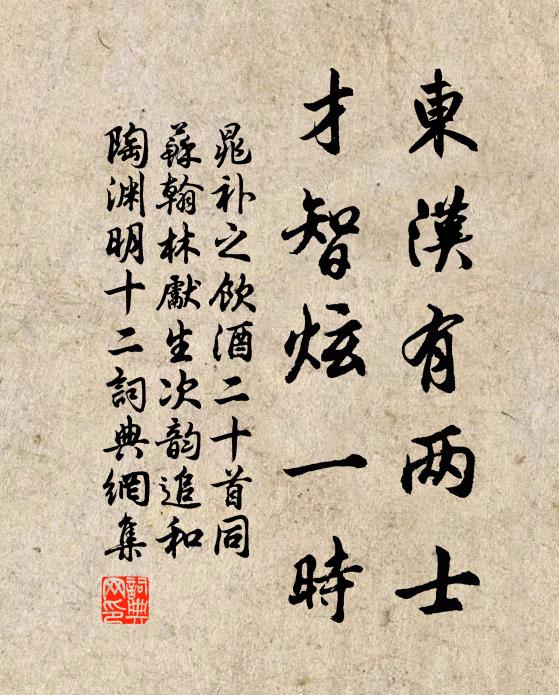 東漢有两士
才智炫一時
晁补之飲酒二十首同
蘇翰林獻生次韵追和
陶渊明十二詞典網集
詞典
网印